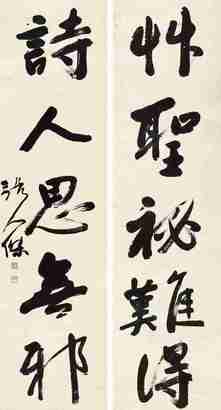 艸聖祕難得
詩人思無邪
張人傑